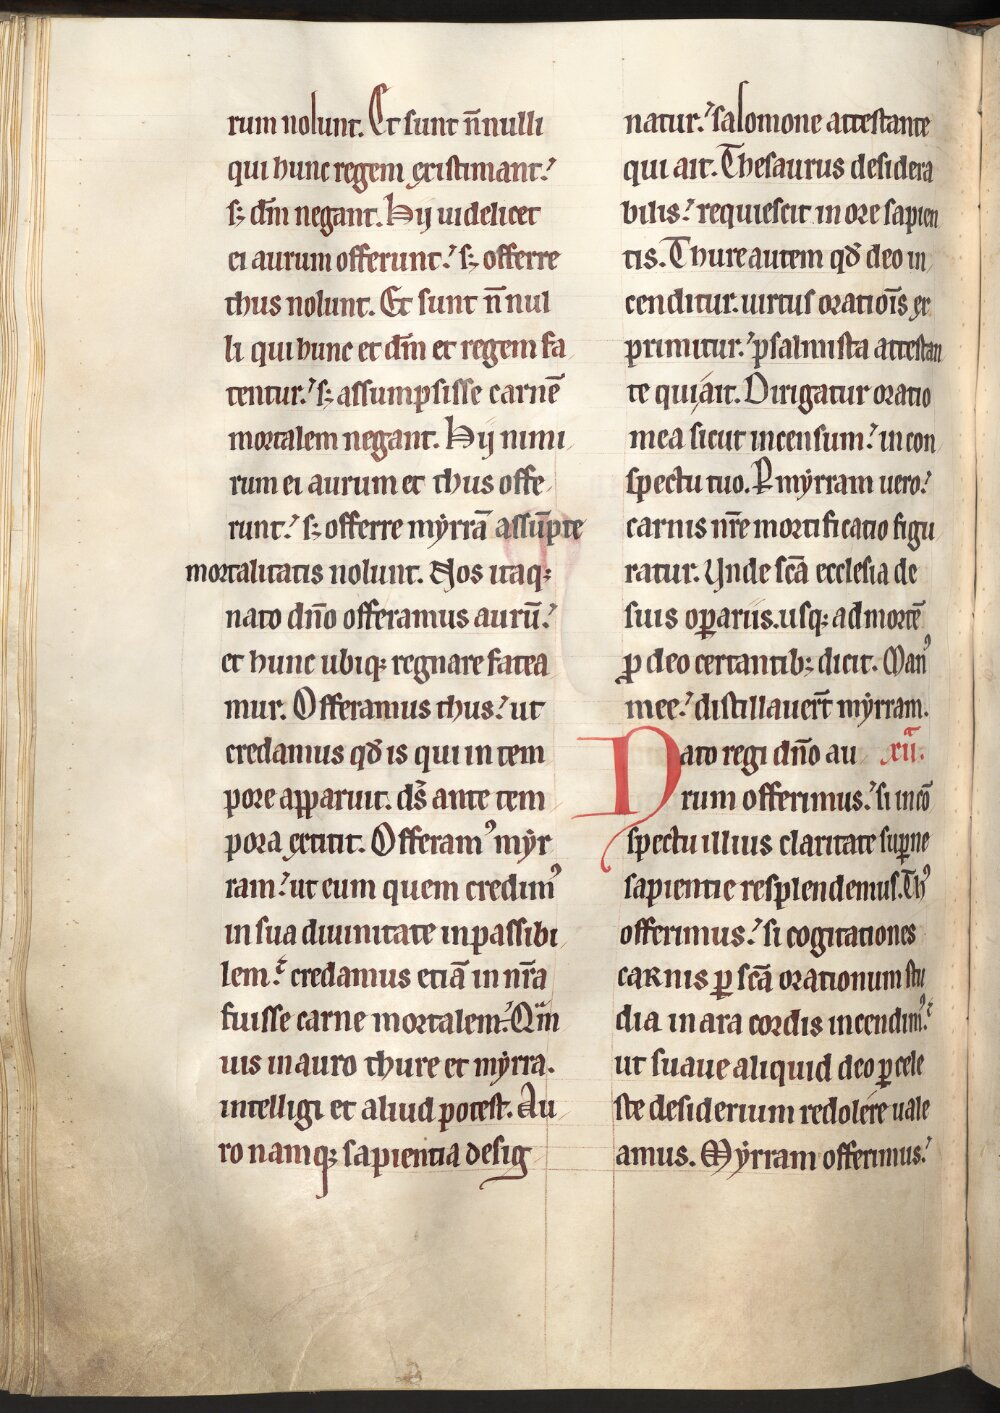 rum nolunt. Et sunt n̄nulli
qui hunc regem existimant.
sꝫ dm̄ negant. Hij uidelicet
ei aurum offerunt. sꝫ offerre
thus nolunt. Et sunt n̄nul
li qui hunc et dm̄ et regem fa
tentur. sꝫ assumpsisse carnē
mortalem negant. Hij nimi
rum ei aurum et thus offe
runt. sꝫ offerre myrrā assūpte
mortalitatis nolunt. Nos itaqꝫ
nato dn̄o offeramus aurū.
et hunc ubiqꝫ regnare fatea
mur. Offeramus thus. ut
credamus qđ is qui in tem
pore apparuit. ds̄ ante tem
pora extitit. Offeramꝰ myr
ram. ut eum quem credimꝰ
in sua diuinitate inpassibi
lem. credamus etiā in nr̄a
fuisse carne mortalem. Qm̄
uis in auro thure et myrra.
intelligi et aliud potest. Au
ro namqꝫ sapientia desig
natur. salomone attestante
qui ait. Thesaurus desidera
bilis. requiescit in ore sapien
tis. Thure autem qđ deo in
cenditur. uirtus oratiōis ex
primitur. psalmista attestan
te qui ait. Dirigatur oratio
mea sicut incensum. in con
spectu tuo. P myrram uero.
carnis nr̄e mortificatio figu
ratur. Unde sc̄a ecclesia de
suis oꝑariis. usqꝫ ad mortē
ꝓ deo certantibꝫ dicit. Manꝰ
mee. distillauer̄t myrram.
Nato regi dn̄o au xii.
rum offerimus. si in cō
spectu illius claritate suꝑne
sapientie resplendemus. Thꝰ
offerimus. si cogitationes
carnis ꝑ sc̄a orationum stu
dia in ara cordis incendimꝰ.
ut suaue aliquid deo ꝑ cele
ste desiderium redolere uale
amus. Myrram offerimus.